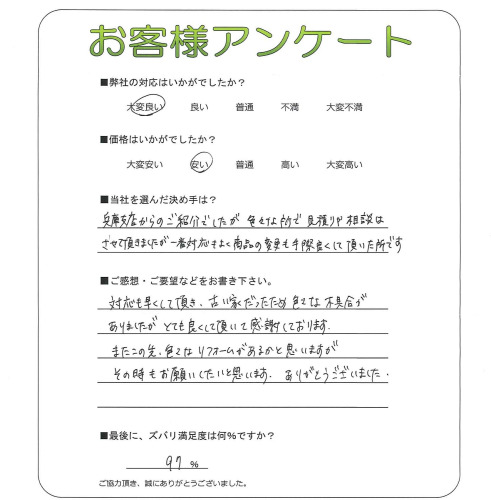 お客様アンケート
■弊社の対応はいかがでしたか？
大変良い 良い 普通 不満 大変不満
■価格はいかがでしたか？
大変安い 安い 普通 高い 大変高い
■当社を選んだ決め手は？
兵庫支店からのご紹介でしたが 色々な所で見積りや相談は
させて頂きましたが一番対応もよく商品の変更も手際良くして頂いた所です
■ご感想・ご要望などをお書き下さい。
対応も早くして頂き、古い家だったため 色々な 不具合が
ありましたが とても良くして頂いて感謝しております。
またこの先、色々なリフォームがあるかと思いますが
その時もお願いしたいと思います。ありがとうございました。
■最後に、ズバリ満足度は何％ですか？
97 ％
ご協力頂き、誠にありがとうございました。